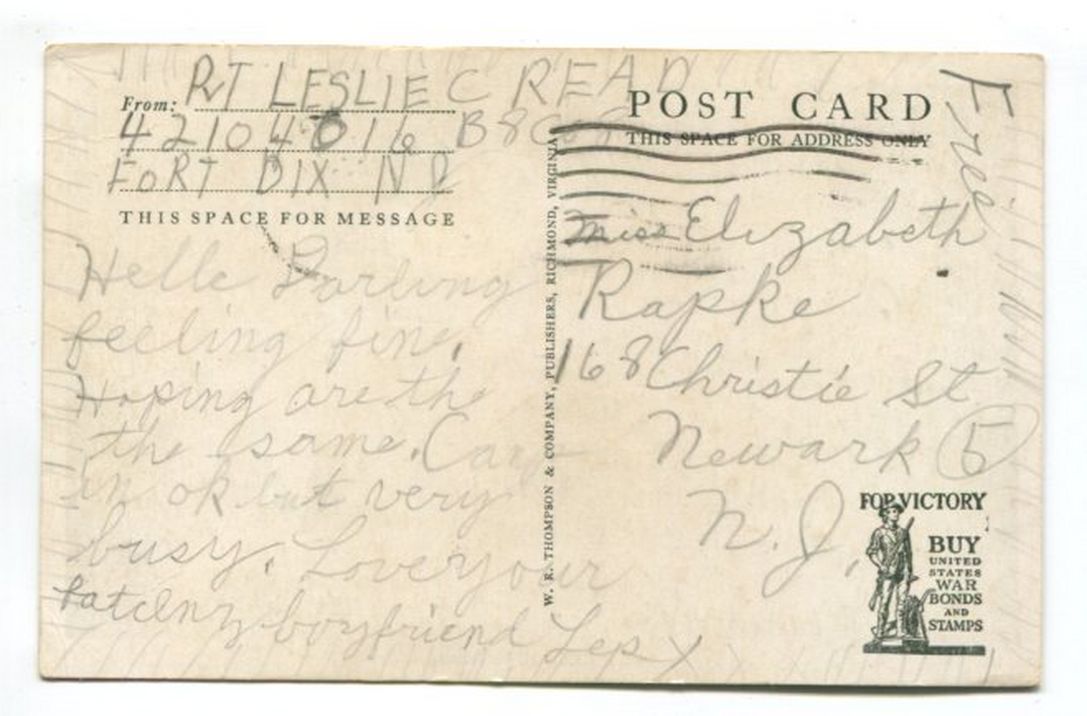 RT LESLIE C READ
From:
42104016 B8
FORT DIX NJ
THIS SPACE FOR MESSAGE
Hello Darling
feeling fine.
Hoping are the
the same.
in ok but very
busy. Love your
boyfriend Les X
W. R. THOMPSON & COMPANY, PUBLISHERS, RICHMOND, VIRGINIA
POST CARD
THIS SPACE FOR ADDRESS ONLY
Free
Miss Elizabeth
Rapke
168 Christie St
Newark 5
N.J.
FOR VICTORY
BUY
UNITED
STATES
WAR
BONDS
AND
STAMPS